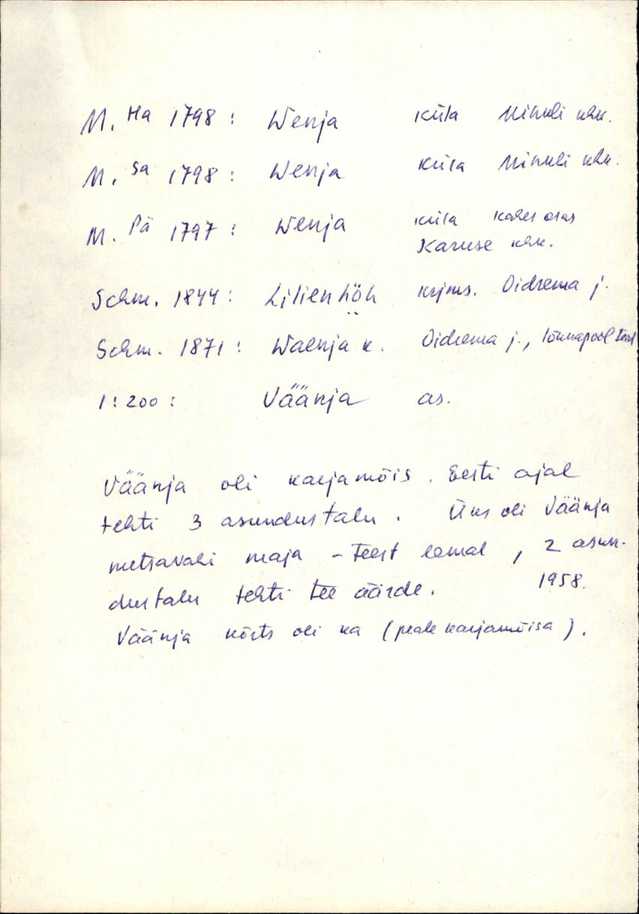 M. Ha 1798: Wenja küla Mihkli khk.
M. Sa 1798: Wenja küla Mihkli khk.
M. Pä 1797: Wenja küla kahes osas
Karuse khk.
Schm. 1844: Lilienhöh krjms. Oidrema j.
Schm. 1871: Waenja k. Oidrema j., lõunapool
1:200: Väänja as.
Väänja oli karjamõis. Eesti ajal
tehti 3 asundustalu. Üks oli Väänja
metsavahi maja – teest eemal, 2 asun-
dustalu tehti tee äärde. 1958.
Väänja kõrts oli ka (peale karjamõisa).